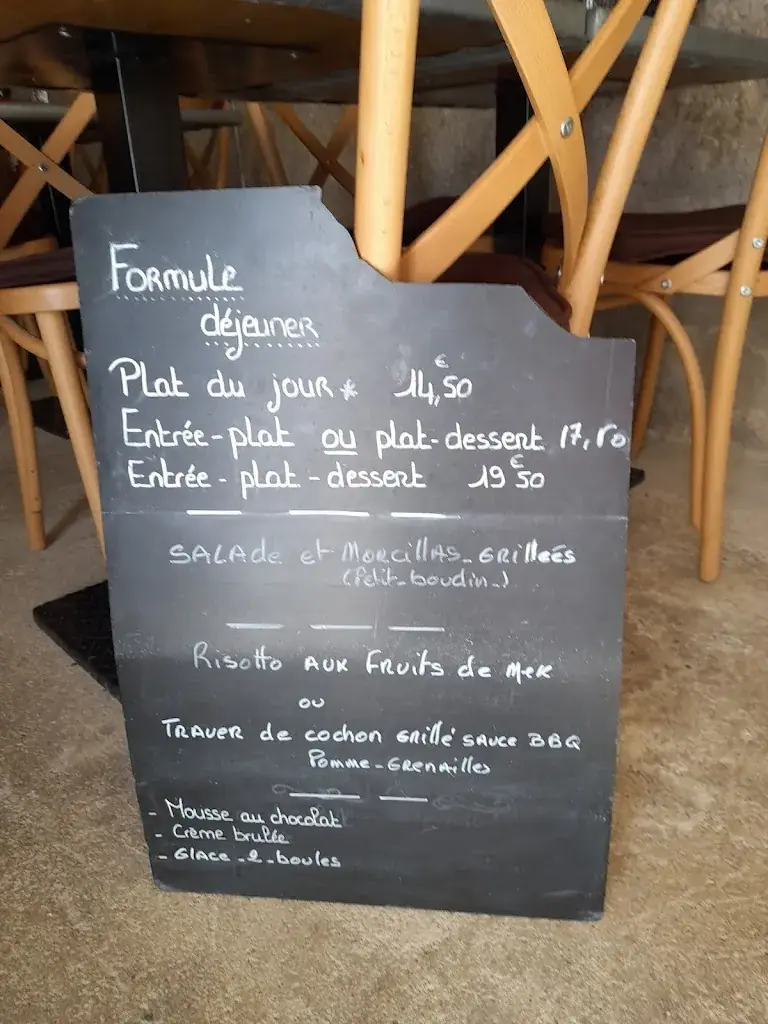 Formule
déjeuner
Plat du jour * 14,€50
Entrée-plat ou plat-dessert 17,50
Entrée - plat - dessert 19€50
SALAde et MORCILLAS_GRillées
(Petit-boudin-)
Risotto AUX FRuits de MER
ou
TRAVER de cochon GRillé SAUCE BBQ
Pomme-GRENAilles
- Mousse au chocolat
- Crème brulée
- Glace -2-boules